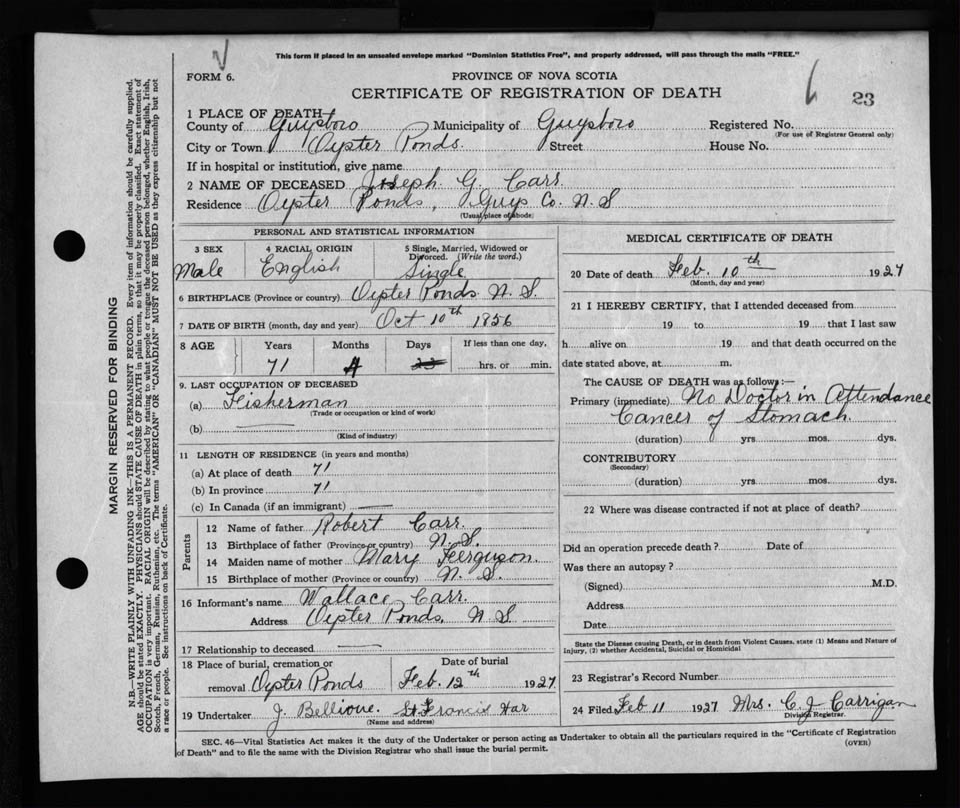 This form if placed in an unsealed envelope marked "Dominion Statistics Free", and properly addressed, will pass through the mails "FREE."
FORM 6.
PROVINCE OF NOVA SCOTIA
CERTIFICATE OF REGISTRATION OF DEATH
6 23
1 PLACE OF DEATH
County of Guysboro Municipality of Guysboro Registered No.
(For use of Registrar General only)
City or Town Oyster Ponds. Street House No.
If in hospital or institution, give name
2 NAME OF DECEASED Joseph G. Carr.
Residence Oyster Ponds, Guys Co. N.S
(Usual place of abode)
PERSONAL AND STATISTICAL INFORMATION
3 SEX 4 RACIAL ORIGIN 5 Single, Married, Widowed or Divorced. (Write the word.)
Male English Single
6 BIRTHPLACE (Province or country) Oyster Ponds N.S.
7 DATE OF BIRTH (month, day and year) Oct 10th 1856
8 AGE Years Months Days If less than one day,
71 4 23 hrs. or min.
9. LAST OCCUPATION OF DECEASED
(a) Fisherman
(Trade or occupation or kind of work)
(b)
(Kind of industry)
11 LENGTH OF RESIDENCE (in years and months)
(a) At place of death 71
(b) In province 71
(c) In Canada (if an immigrant)
Parents
12 Name of father Robert Carr.
13 Birthplace of father (Province or country) N.S.
14 Maiden name of mother Mary Ferguson.
15 Birthplace of mother (Province or country) N.S.
16 Informant's name Wallace Carr.
Address Oyster Ponds, N.S
17 Relationship to deceased
18 Place of burial, cremation or Date of burial
removal Oyster Ponds Feb. 12th 1927
19 Undertaker J. Bellioue. St. Francis Har
(Name and address)
MEDICAL CERTIFICATE OF DEATH
20 Date of death Feb. 10th 1927
(Month, day and year)
21 I HEREBY CERTIFY, that I attended deceased from
19 to 19 that I last saw
h alive on 19 and that death occurred on the
date stated above, at m.
The CAUSE OF DEATH was as follows:—
Primary (immediate) No Doctor in Attendance
Cancer of Stomach.
(duration) yrs mos. dys.
CONTRIBUTORY
(Secondary)
(duration) yrs. mos. dys.
22 Where was disease contracted if not at place of death?
Did an operation precede death? Date of
Was there an autopsy?
(Signed) M.D.
Address
Date
State the Disease causing Death, or in death from Violent Causes, state (1) Means and Nature of
Injury, (2) whether Accidental, Suicidal or Homicidal
23 Registrar's Record Number
24 Filed Feb 11 1927 Mrs. C. J Carrigan
Division Registrar.
SEC. 46—Vital Statistics Act makes it the duty of the Undertaker or person acting as Undertaker to obtain all the particulars required in the "Certificate of Registration
of Death" and to file the same with the Division Registrar who shall issue the burial permit.
(OVER)
MARGIN RESERVED FOR BINDING
N.B.—WRITE PLAINLY WITH UNFADING INK—THIS IS A PERMANENT RECORD. Every item of information should be carefully supplied.
AGE should be stated EXACTLY. PHYSICIANS should STATE CAUSE OF DEATH in plain terms, so that it may be properly classified. Exact statement of
OCCUPATION is very important. RACIAL ORIGIN will be described by stating to what people or tongue the deceased person belonged, whether English, Irish,
Scotch, French, German, Russian, Ruthenian, etc. The terms "AMERICAN" OR "CANADIAN" MUST NOT BE USED as they express citizenship but not
a race or people. See instructions on back of Certificate.